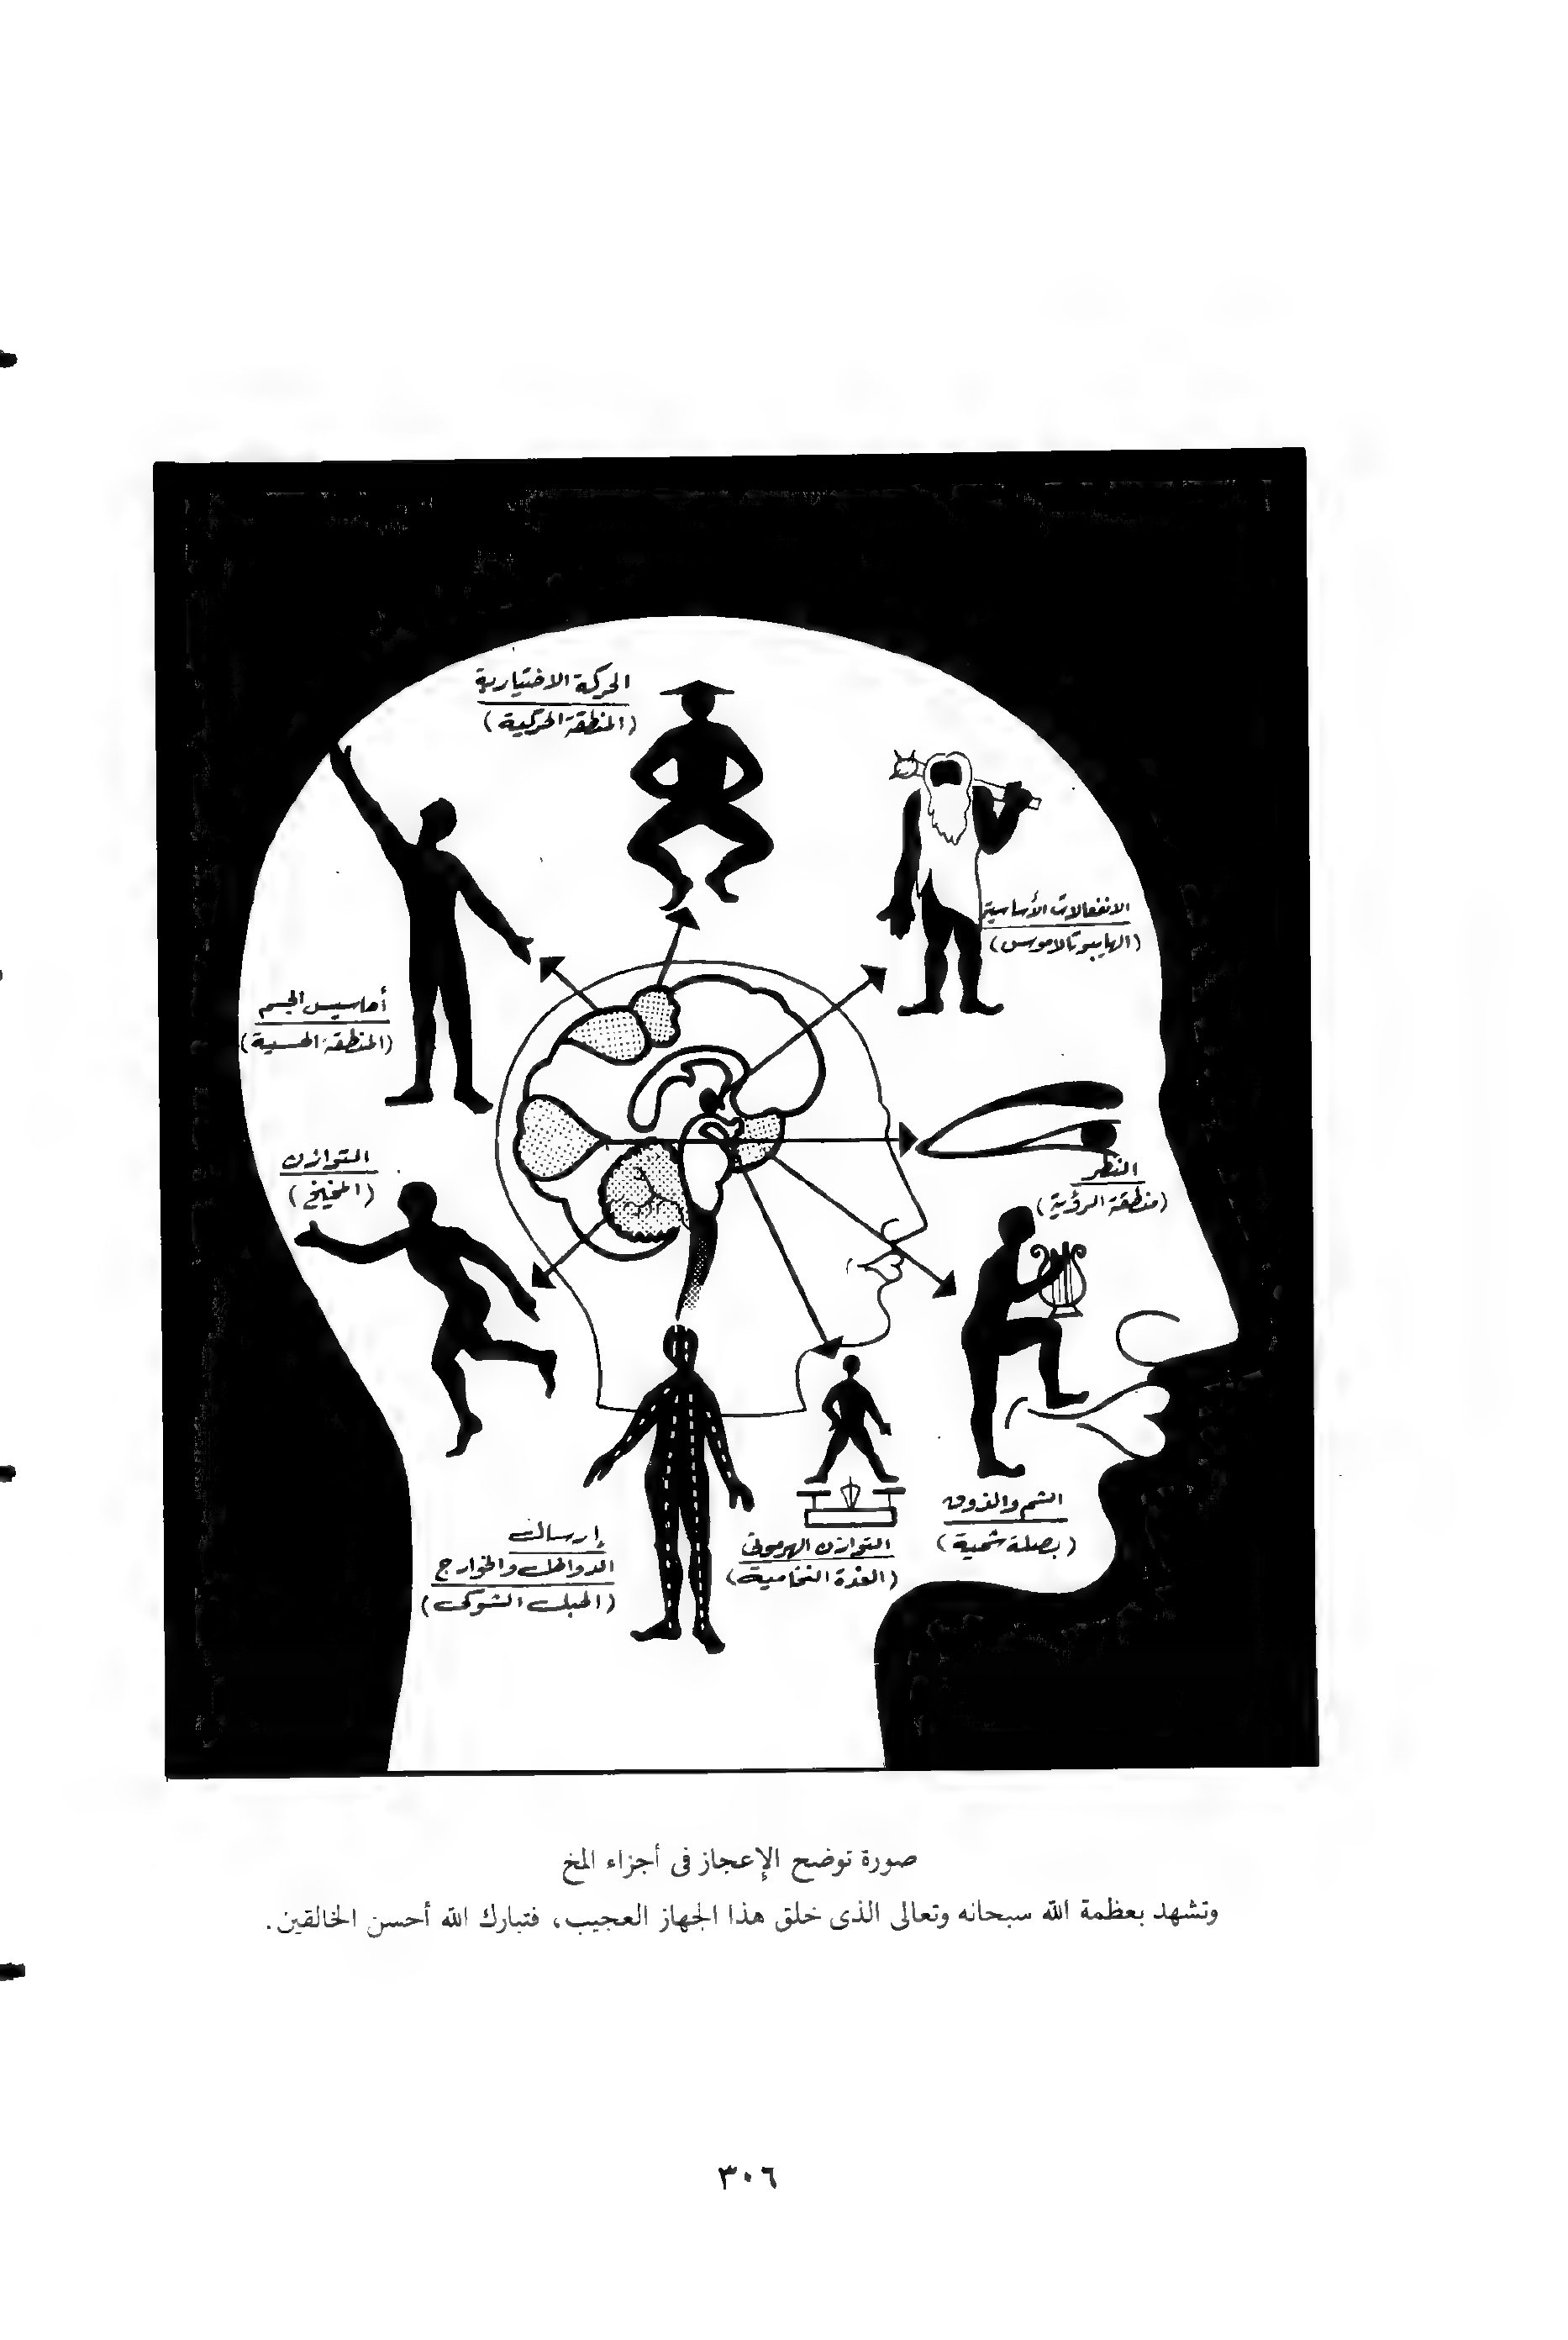 الحركة الاختيارية
(المنطقة الحركية)
الانفعالات الأساسية
(الهايبوتالاموس)
أحاسيس الجسم
(المنطقة الحسية)
النظر
(منطقة الرؤية)
التوازن
(المخيخ)
الشم والذوق
(بصلة شمية)
التوازن الهرموني
(الغدة النخامية)
إرسالات
الدواخل والخوارج
(الحبل الشوكى)
صورة توضح الإعجاز فى أجزاء المخ
وتشهد بعظمة الله سبحانه وتعالى الذى خلق هذا الجهاز العجيب، فتبارك الله أحسن الخالقين.
٣٠٦